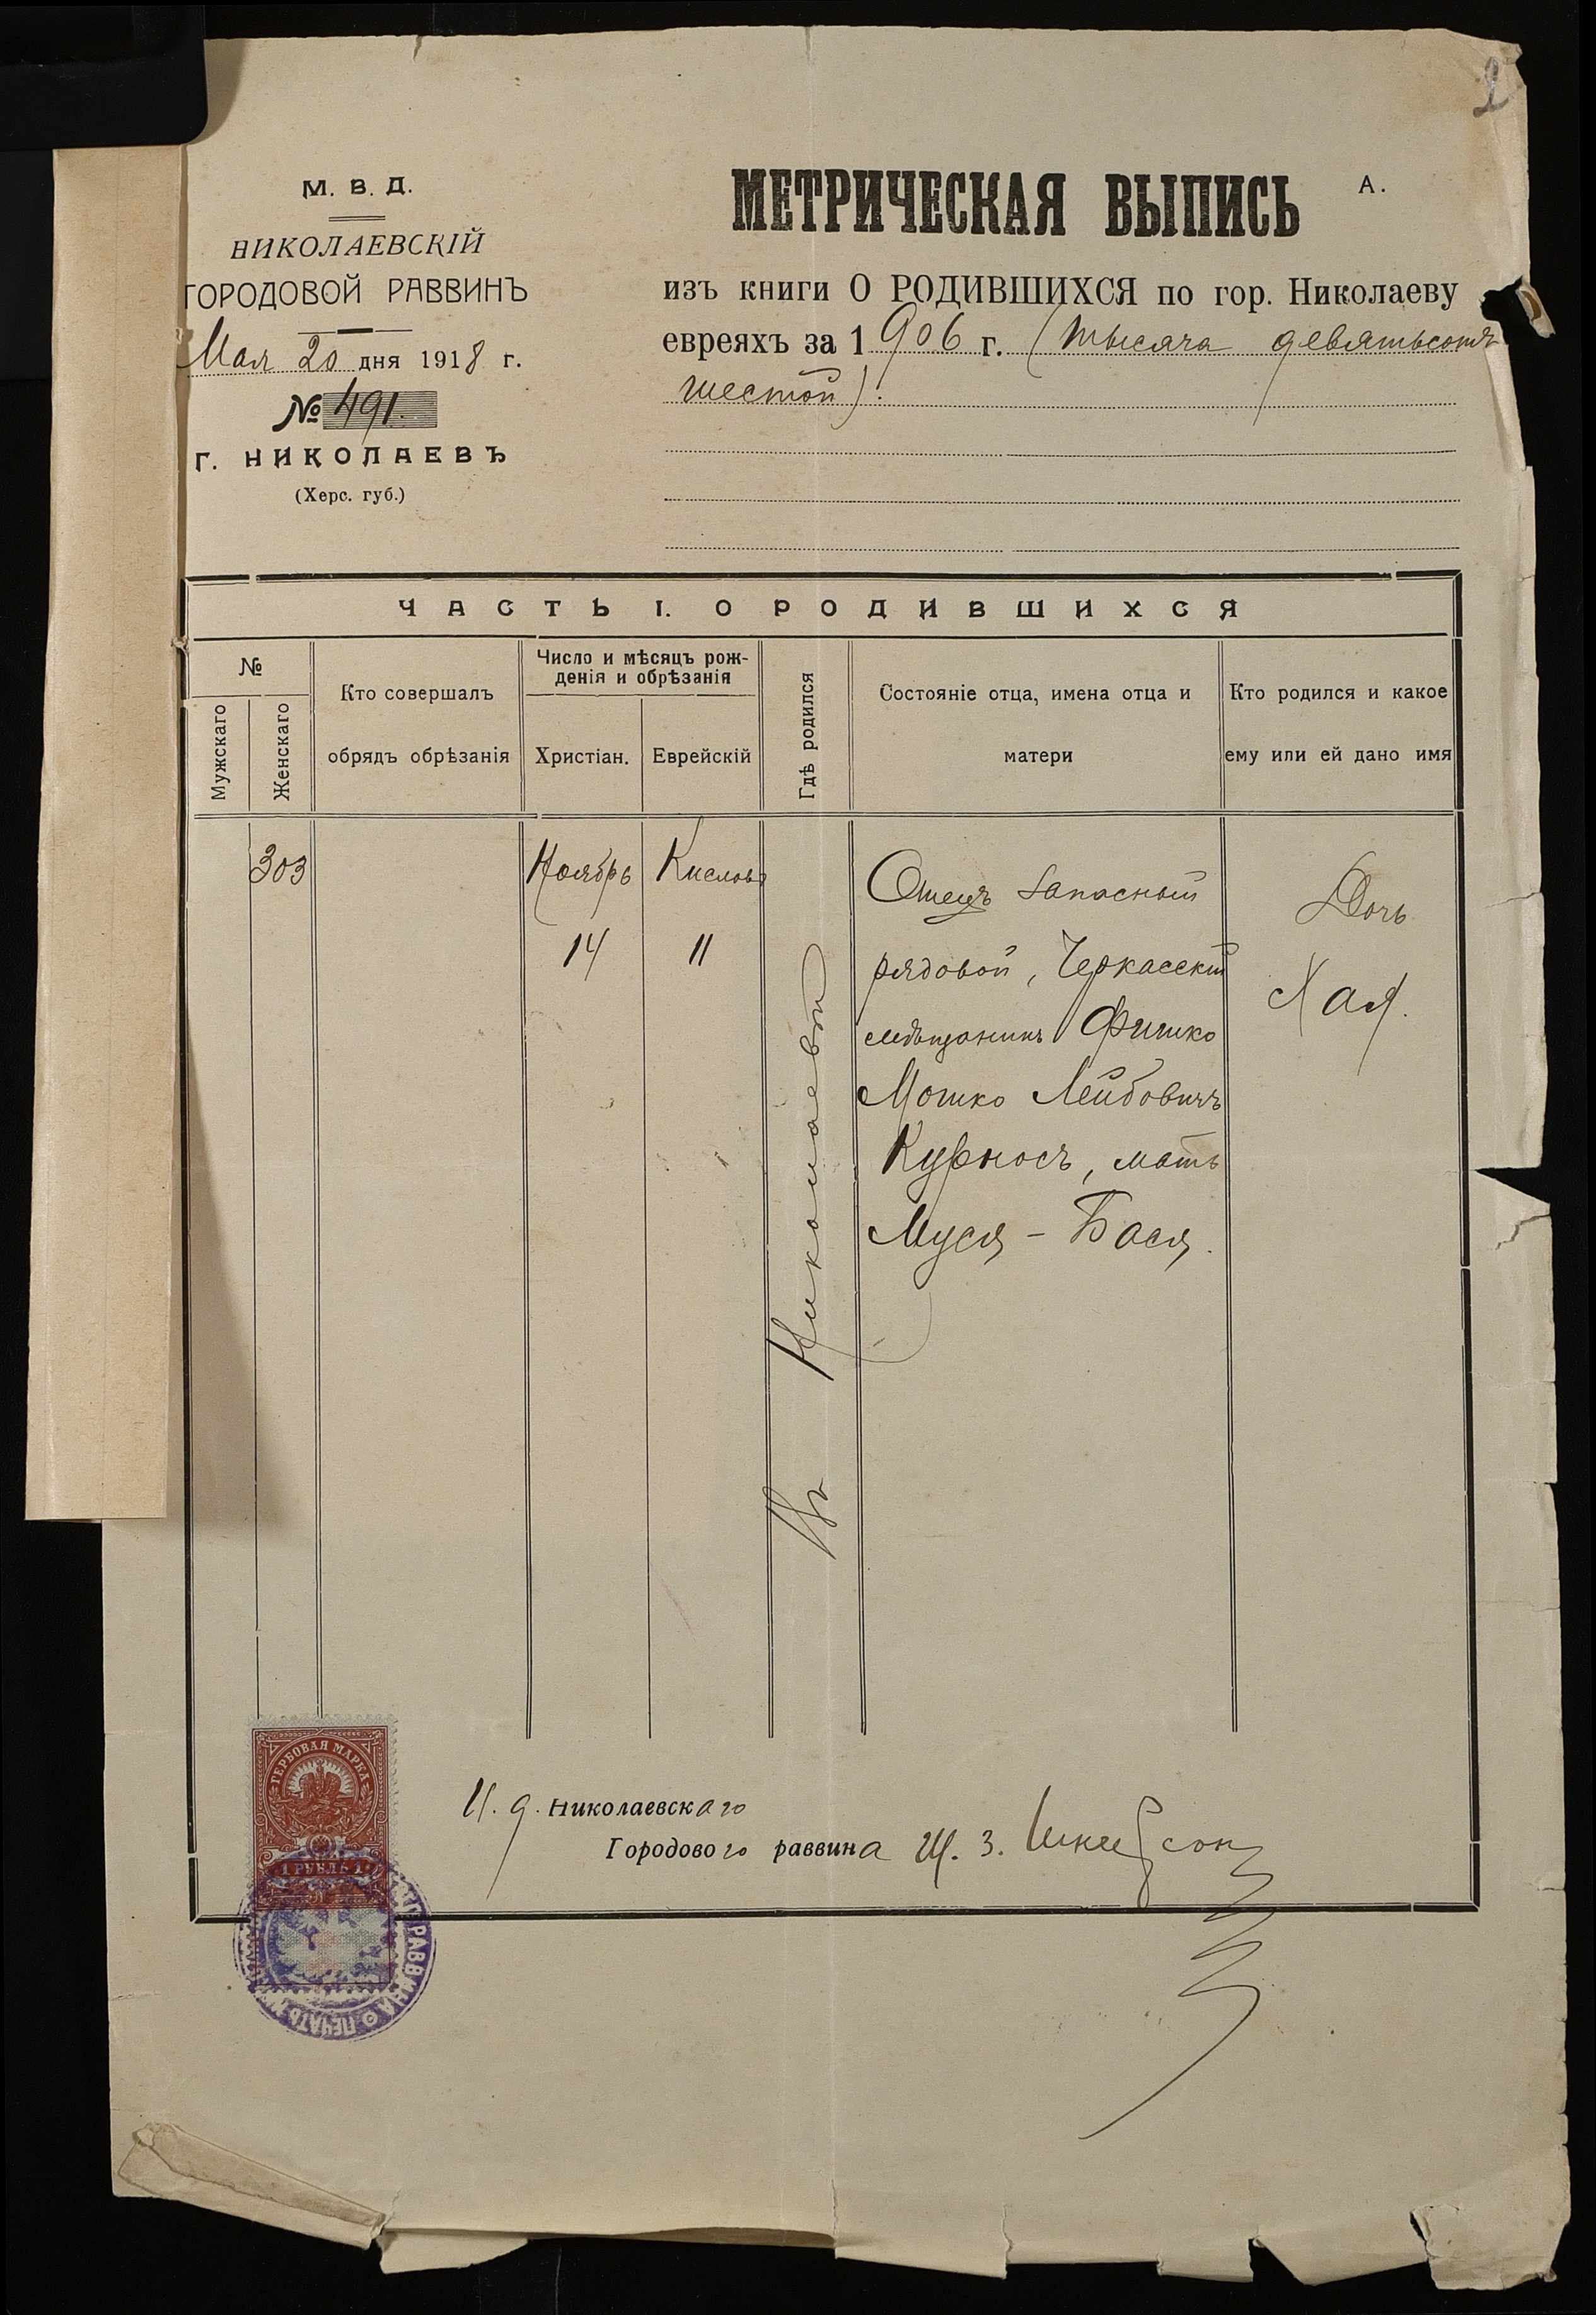 2
М. В. Д.
НИКОЛАЕВСКІЙ
ГОРОДОВОЙ РАВВИНЪ
Мая 20 дня 1918 г.
№ 491.
Г. НИКОЛАЕВЪ
(Херс. губ.)
МЕТРИЧЕСКАЯ ВЫПИСЬ
А.
изъ книги О РОДИВШИХСЯ по гор. Николаеву
евреяхъ за 1906 г. (тысяча девятьсотъ
шестой).
ЧАСТЬ I. О РОДИВШИХСЯ
№
Мужскаго
Женскаго
Кто совершалъ
обрядъ обрѣзанія
Число и мѣсяцъ рож-
денія и обрѣзанія
Христіан.
Еврейскій
Гдѣ родился
Состояніе отца, имена отца и
матери
Кто родился и какое
ему или ей дано имя
303
Ноябрь
14
Кислевъ
11
Въ Николаевѣ
Отецъ запасный
рядовой, Черкасскій
мѣщанинъ Фишко
Мошко Лейбовичъ
Курносъ, мать
Муся - Бася.
Дочь
Хая.
ГЕРБОВАЯ МАРКА
1 РУБЛЬ 1
И. д. Николаевскаго
Городового раввина Ш. З.
РАВВИНА ПЕЧАТЬ